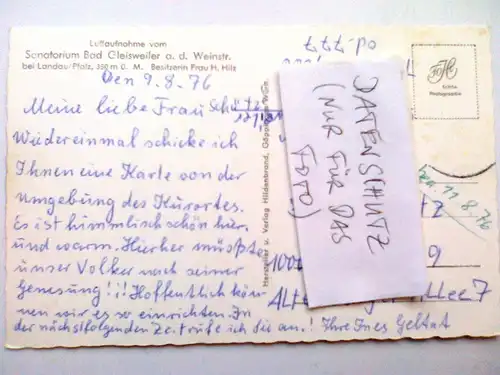 Luftaufnahme vom
Sanatorium Bad Gleisweiler a. d. Weinstr.
bei Landau/Pfalz, 350 m ü. M. Besitzerin Frau H. Hilz
Den 9.8.76
Meine liebe Frau
Wiedereinmal schicke ich
Ihnen eine Karte von der
Umgebung des Kurortes.
Es ist himmlisch schön hier
und warm. Hierher müsste
unser Volker nach seiner
Genesung!!! Hoffentlich kön-
nen wir es so einrichten. In
der nächstfolgenden Zeit rufe ich Sie an! Ihre Ines
Hersteller u. Verlag Hildenbrand, Göppingen/Württ.
DATENSCHUTZ
(NUR FÜR DAS
FOTO)
Echte
Photographie
11.8.76
tz
9
1000
Allee 7